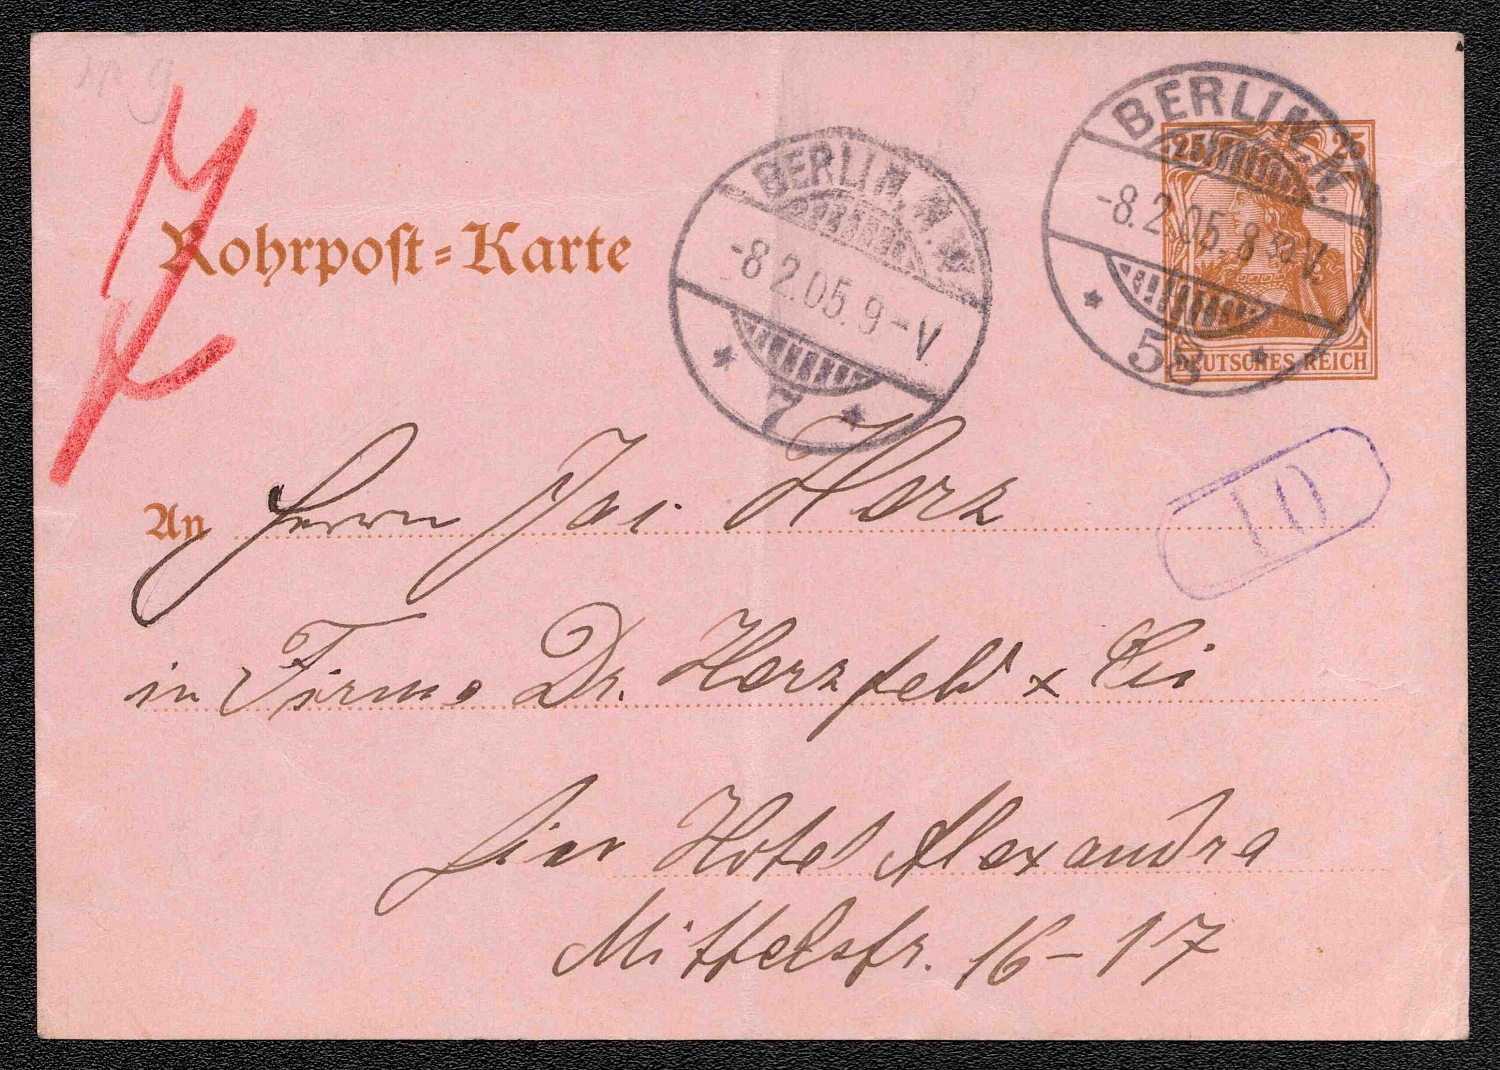 BERLIN. N.
25 25
-8.2.05. 8 30 V.
* 58 *
DEUTSCHES REICH
BERLIN. N.W.
-8.2.05. 9-V.
* 7 *
7
Rohrpost-Karte
10
An Herrn Jac. Herz
in Firma Dr. Herzfeld & Cie
hier Hotel Alexandra
Mittelstr. 16-17